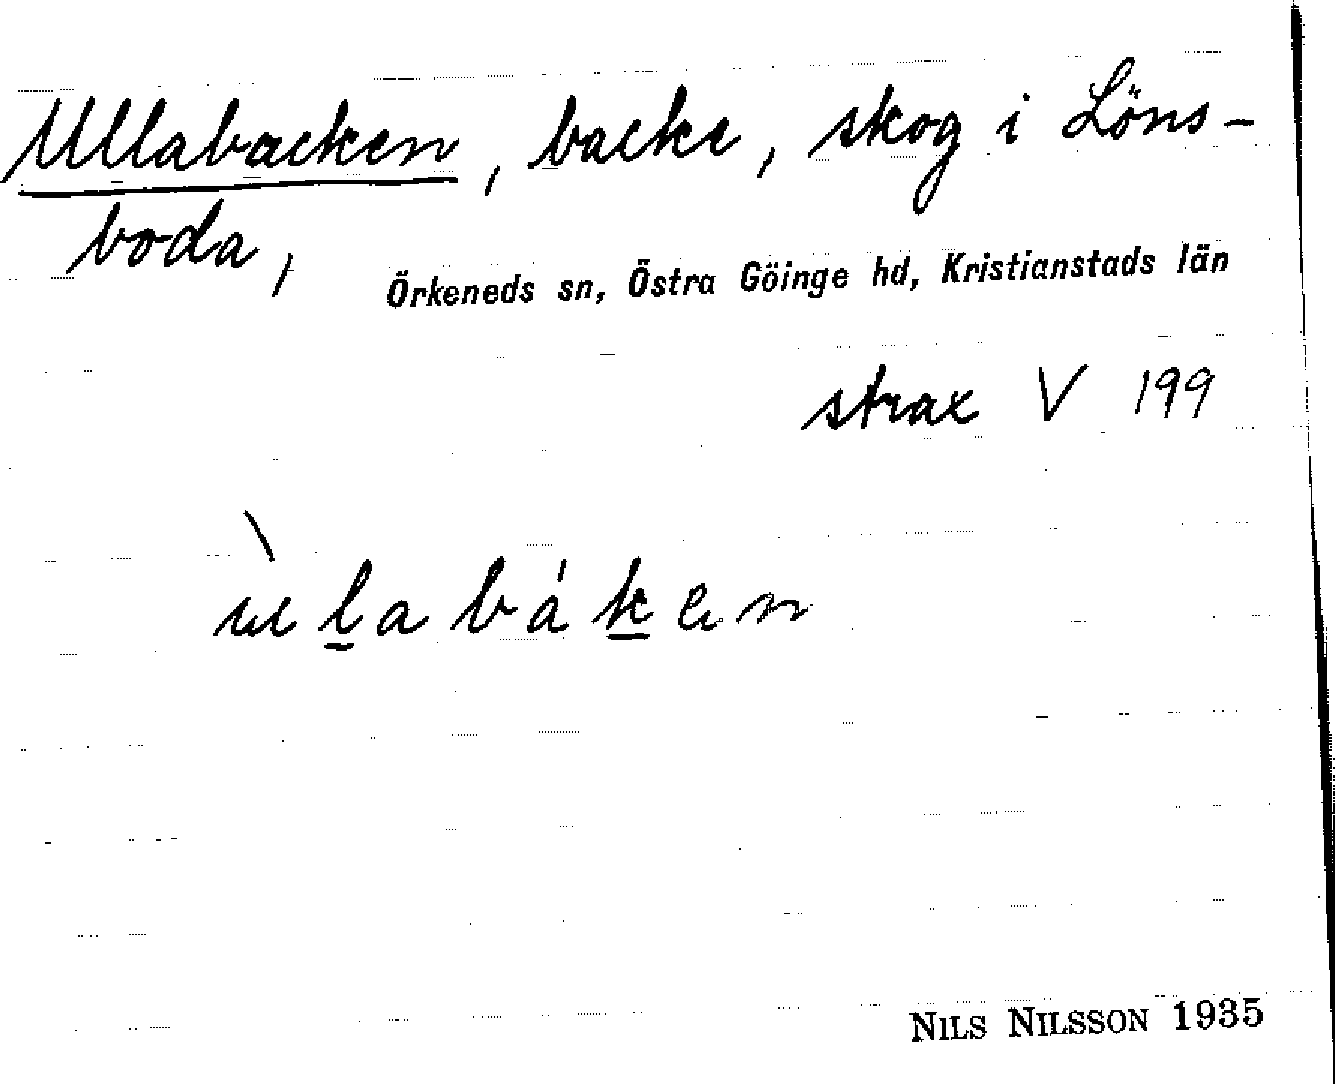 Ullabacken, backe, skog i Löns-
boda,
Örkeneds sn, Östra Göinge hd, Kristianstads län
strax V 199
ùl̲abák̲en
NILS NILSSON 1935